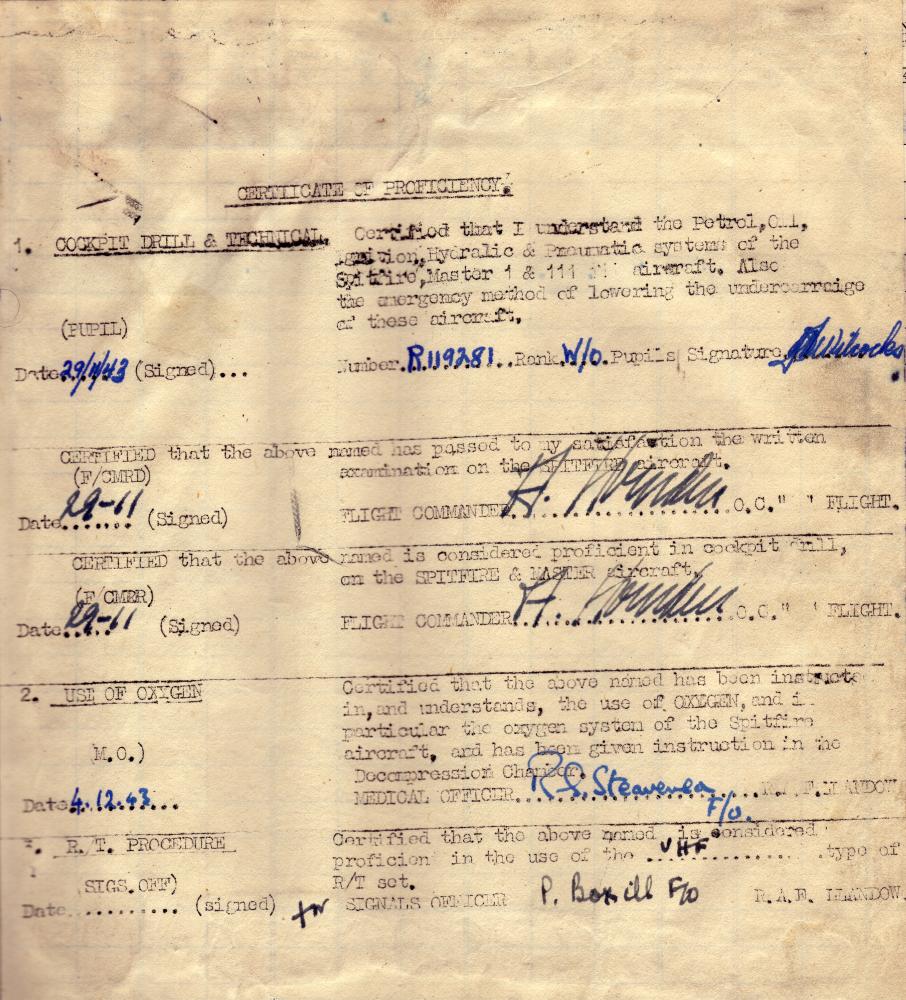 CERTIICATE OF PROFICIENCY.
1. COCKPIT DRILL & TECHNICAL. Certified that I understand the Petrol, Oil,
Ignition, Hydralic & Pneumatic systems of the
Spitfire, Master 1 & 111 aircraft. Also
the emergency method of lowering the undercarraige
of these aircraft.
(PUPIL)
Date 29/11/43 (Signed)... Number. R119281..Rank W/O.Pupils Signature
CERTIFIED that the above named has passed to my satisfaction the written
(F/CMRD) examination on the SPITFIRE aircraft.
Date 29-11 (Signed) FLIGHT COMMANDER H. .......O.C." " FLIGHT.
CERTIFIED that the above named is considered proficient in cockpit drill,
on the SPITFIRE & MASTER aircraft.
(F/CMDR)
Date 29-11 (Signed) FLIGHT COMMANDER H. .......O.C." " FLIGHT.
2. USE OF OXYGEN Certified that the above named has been instructe
in, and understands, the use of OXYGEN, and i
particular the oxygen system of the Spitfire
M.O.) aircraft, and has been given instruction in the
Decompression Chamber.
Date 4.12.43... MEDICAL OFFICER F/O. R.A.F. LLANDOW
R./T. PROCEDURE Certified that the above named is considered
proficien in the use of the VHF type of
SIGS.OFF) R/T set.
Date.......... (signed) SIGNALS OFFICER P. Boxill F/O R.A.F. LLANDOW.